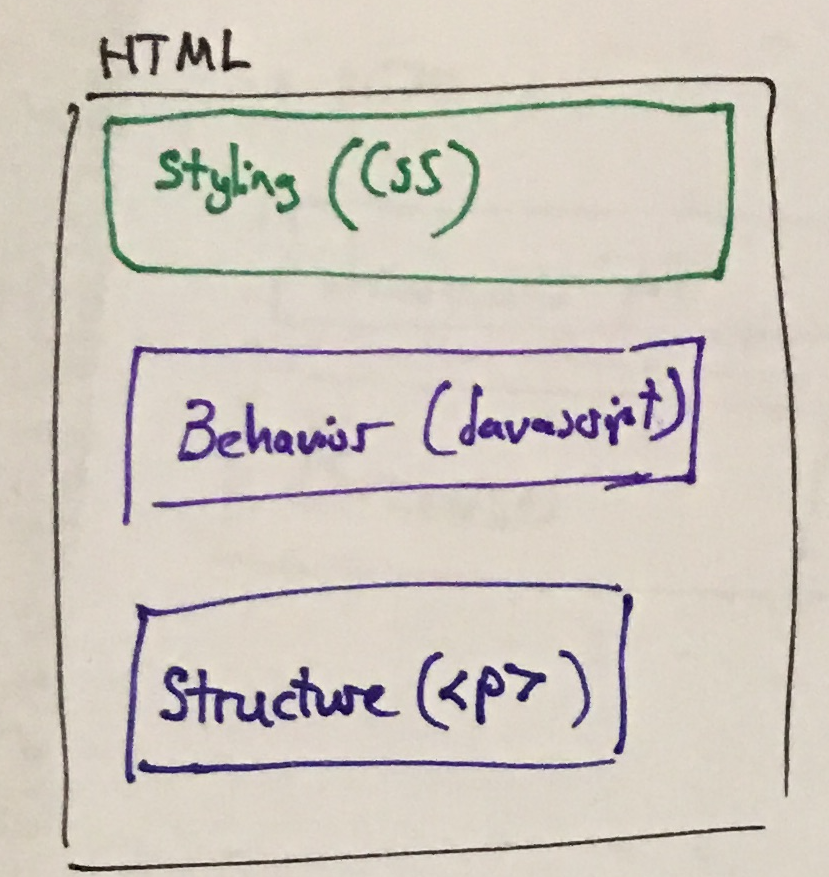 HTML
Styling (CSS)
Behavior (Javascript)
Structure (<p>)